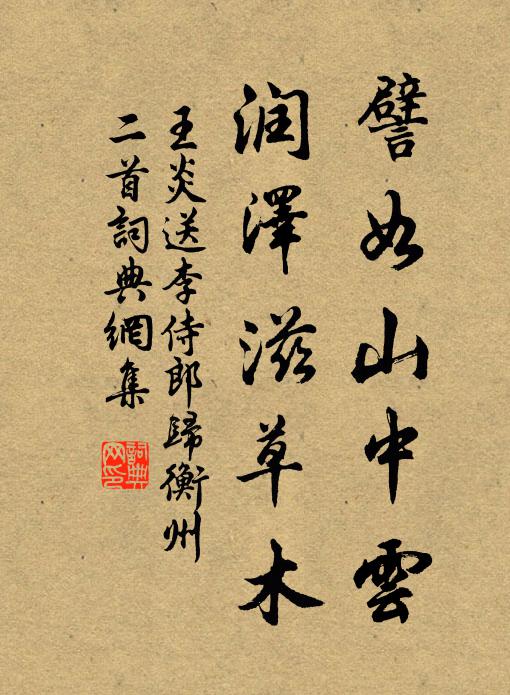 譬如山中雲
润澤滋草木
王炎送李侍郎歸衡州
二首詞典網集
詞典
网印